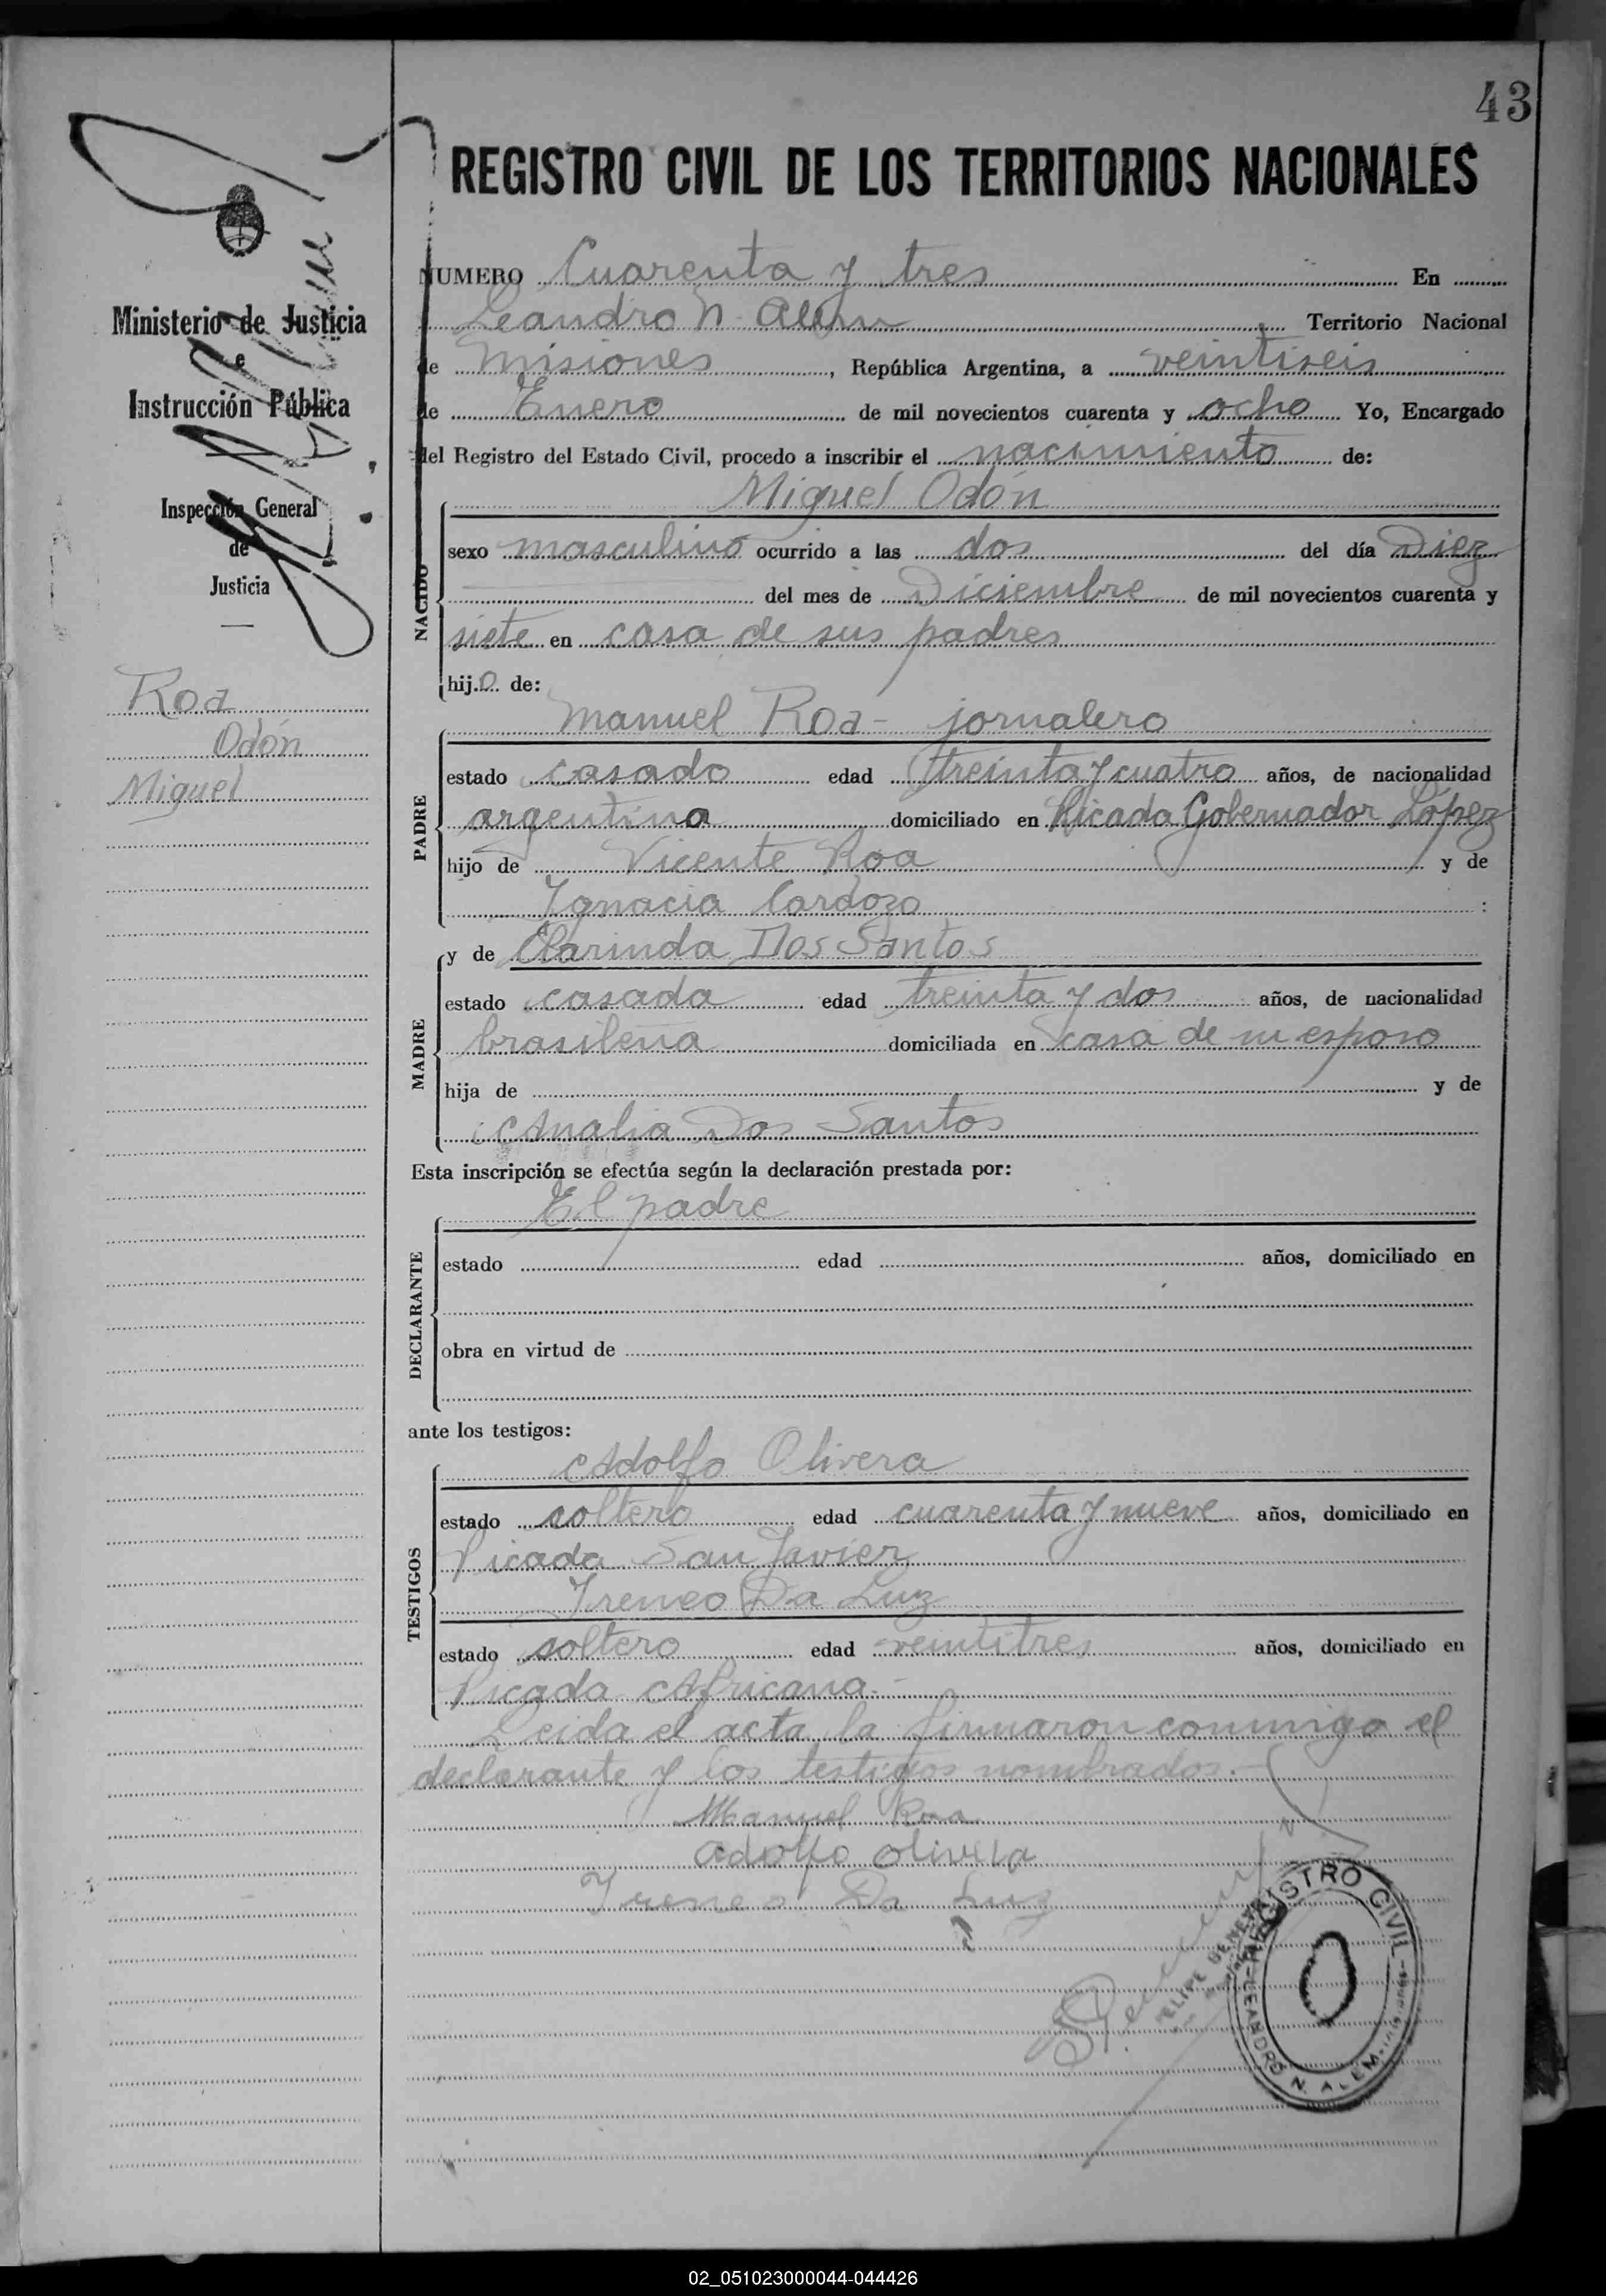 43
REGISTRO CIVIL DE LOS TERRITORIOS NACIONALES
Ministerio de Justicia
e
Instrucción Pública
Inspección General
de
Justicia
Roa
Odón
Miguel
NUMERO Cuarenta y tres En
Leandro N. Alem Territorio Nacional
de Misiones, República Argentina, a veintiseis
de Enero de mil novecientos cuarenta y ocho Yo, Encargado
del Registro del Estado Civil, procedo a inscribir el nacimiento de:
NACIDO
Miguel Odón
sexo masculino ocurrido a las dos del día Diez
del mes de Diciembre de mil novecientos cuarenta y
siete en casa de sus padres
hijo de:
PADRE
Manuel Roa - jornalero
estado casado edad treinta y cuatro años, de nacionalidad
argentina domiciliado en Picada Gobernador López
hijo de Vicente Roa y de
Ignacia Cardozo :
MADRE
y de Clarinda Dos Santos
estado casada edad treinta y dos años, de nacionalidad
brasileña domiciliada en casa de su esposo
hija de y de
Analia Dos Santos
Esta inscripción se efectúa según la declaración prestada por:
DECLARANTE
El padre
estado edad años, domiciliado en
obra en virtud de
ante los testigos:
TESTIGOS
Adolfo Olivera
estado soltero edad cuarenta y nueve años, domiciliado en
Picada San Javier
Ireneo Da Luz
estado soltero edad veintitres años, domiciliado en
Picada Africana.-
Leida el acta la firmaron conmigo el
declarante y los testigos nombrados.-
Manuel Roa
adolfo olivera
Ireneo Da Luz
REGISTRO CIVIL
LEANDRO N. ALEM
02_051023000044-044426